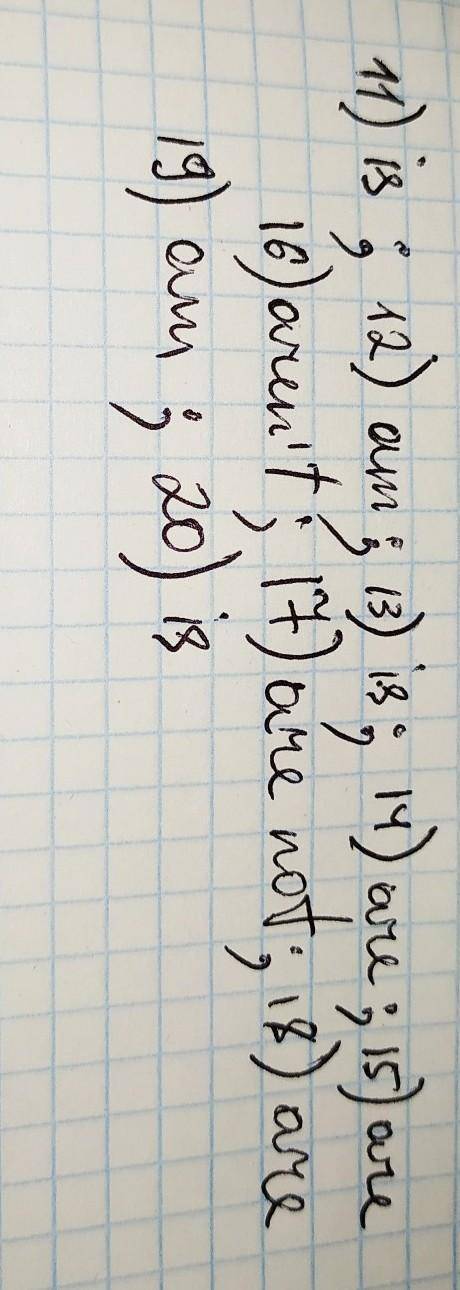 11) is ; 12) am ; 13) is ; 14) are ; 15) are
16) aren't ; 17) are not ; 18) are
19) am ; 20) is